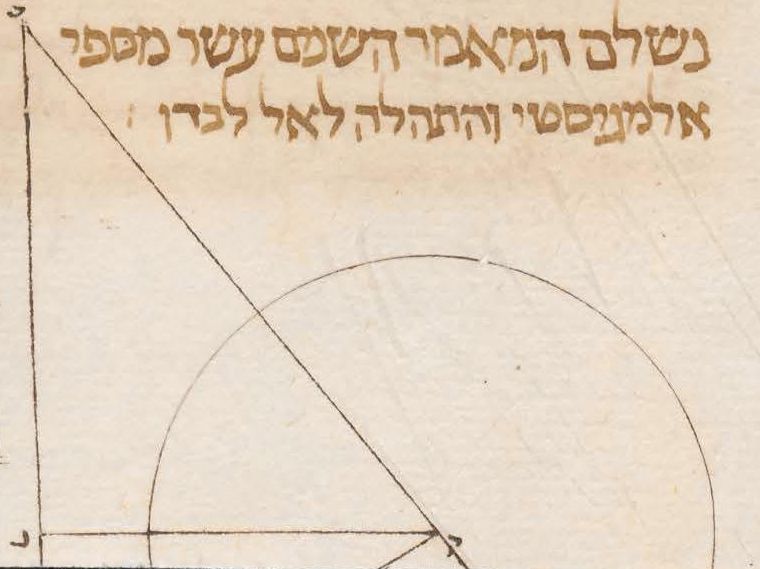 נשלם המאמר השנים עשר מספרי
אלמגיסטי והתהלה לאל לבדו